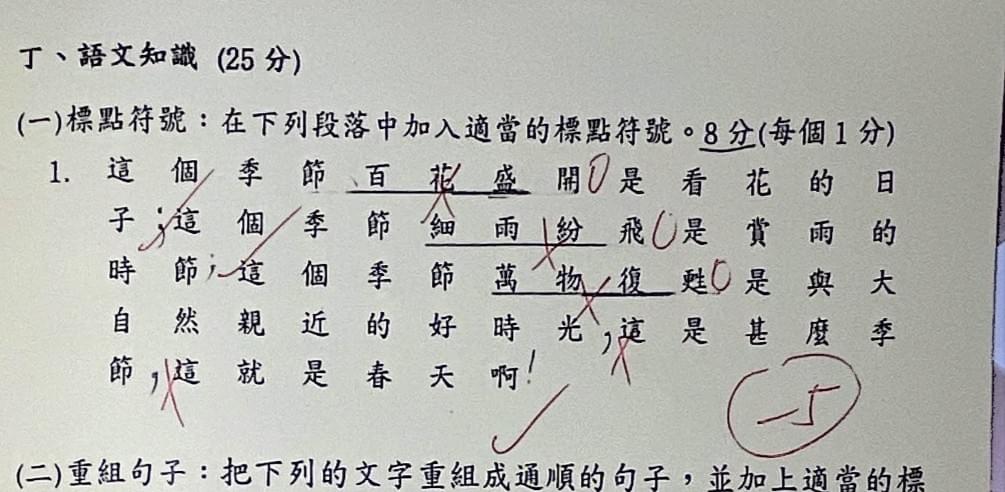 丁、語文知識 (25 分)
(一)標點符號：在下列段落中加入適當的標點符號。8 分(每個 1 分)
1. 這個季節百花盛開是看花的日
子；這個季節細雨紛飛是賞雨的
時節；這個季節萬物復甦是與大
自然親近的好時光，這是甚麼季
節，這就是春天啊！
-5
(二)重組句子：把下列的文字重組成通順的句子，並加上適當的標